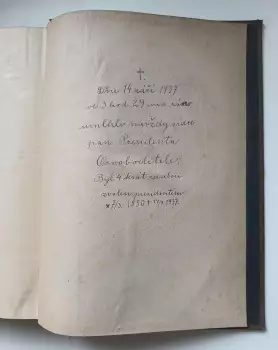 †.
Dne 14 září 1937
ve 3 hod. 29 min. ráno
umlklo navždy srdce
pan Presidenta
Osvoboditele.
Byl 4 krát zvolen
zvolen presidentem
* 7/3. 1850 † 14/9 1937.